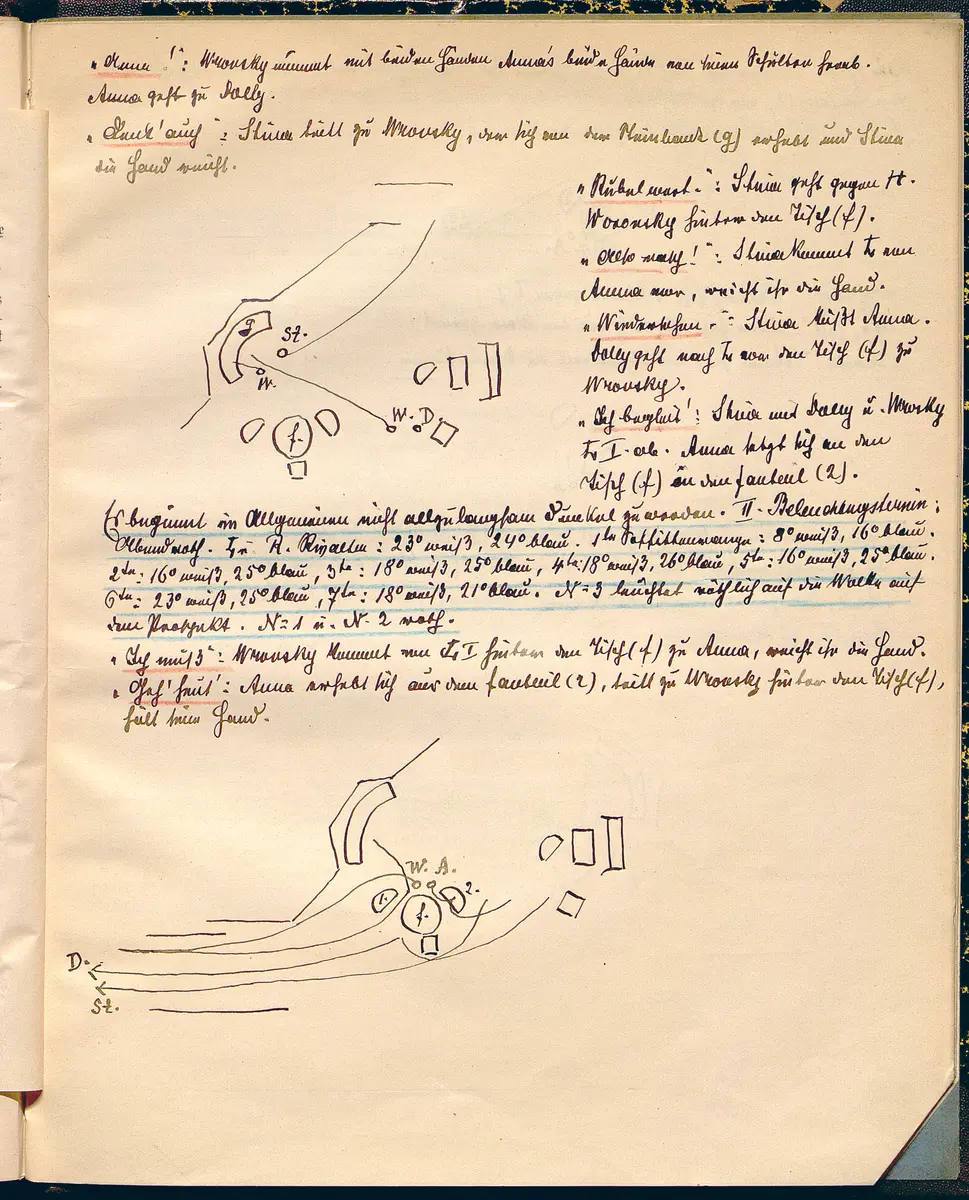 „Anna!“: Wronsky nimmt mit beiden Händen Anna's beide Hände von seinen Schultern herab.
Anna geht zu Dolly.
„Denk' auch“: Stina tritt zu Wronsky, der sich von der Steinbank (g) erhebt und Stina
die Hand reicht.
„Rubel wert.“: Stina geht gegen H.
Woronsky hinter den Tisch (f).
„Also rasch!“: Stina kommt von
Anna vor, reicht ihr die Hand.
„Wiedersehen.“: Stina küßt Anna.
Dolly geht nach vor den Tisch (f) zu
Wronsky.
„Ich begleit'!“: Stina mit Dolly u. Wronsky
I. ab. Anna setzt sich an den
Tisch (f) in den Fauteuil (2).
g
St.
W.
W. D.
f.
Es beginnt im Allgemeinen nicht allzulangsam Dunkel zu werden. II. Beleuchtungstermin:
Abendroth. R. Rivalten: 23° weiß, 24° blau. 1te Soffittenrampe: 8° weiß, 16° blau.
2te: 16° weiß, 25° blau, 3te: 18° weiß, 25° blau, 4te: 18° weiß, 26° blau, 5te: 16° weiß, 25° blau.
6te: 23° weiß, 25° blau, 7te: 18° weiß, 21° blau. N=3 leuchtet röthlich auf die Wolke auf
dem Prospekt. N=1 u. N=2 roth.
„Ich muß“: Wronsky kommt von I hinter den Tisch (f) zu Anna, reicht ihr die Hand.
„Geh' heut'“: Anna erhebt sich aus dem Fauteuil (2), tritt zu Wronsky hinter den Tisch (f),
hält seine Hand.
W. A.
1.
f.
2.
D.
St.